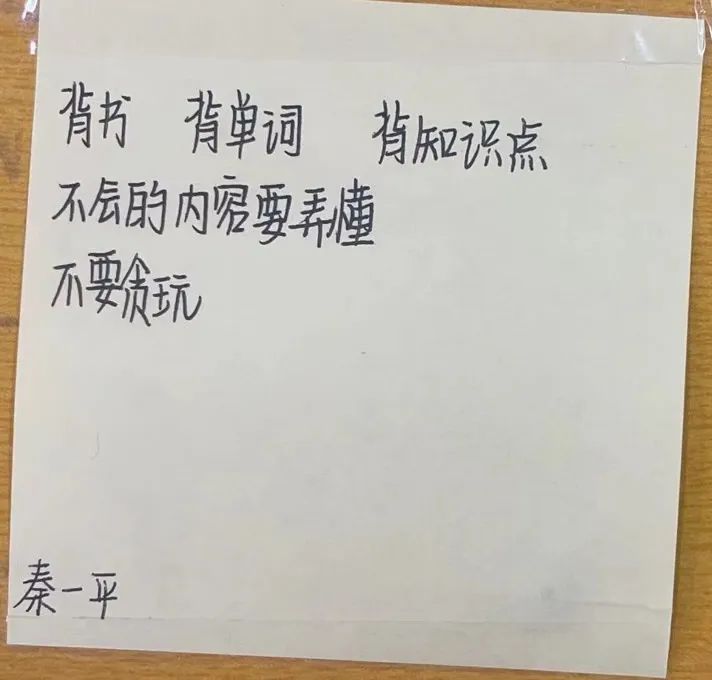 背书 背单词 背知识点
不会的内容要弄懂
不要贪玩
秦一平